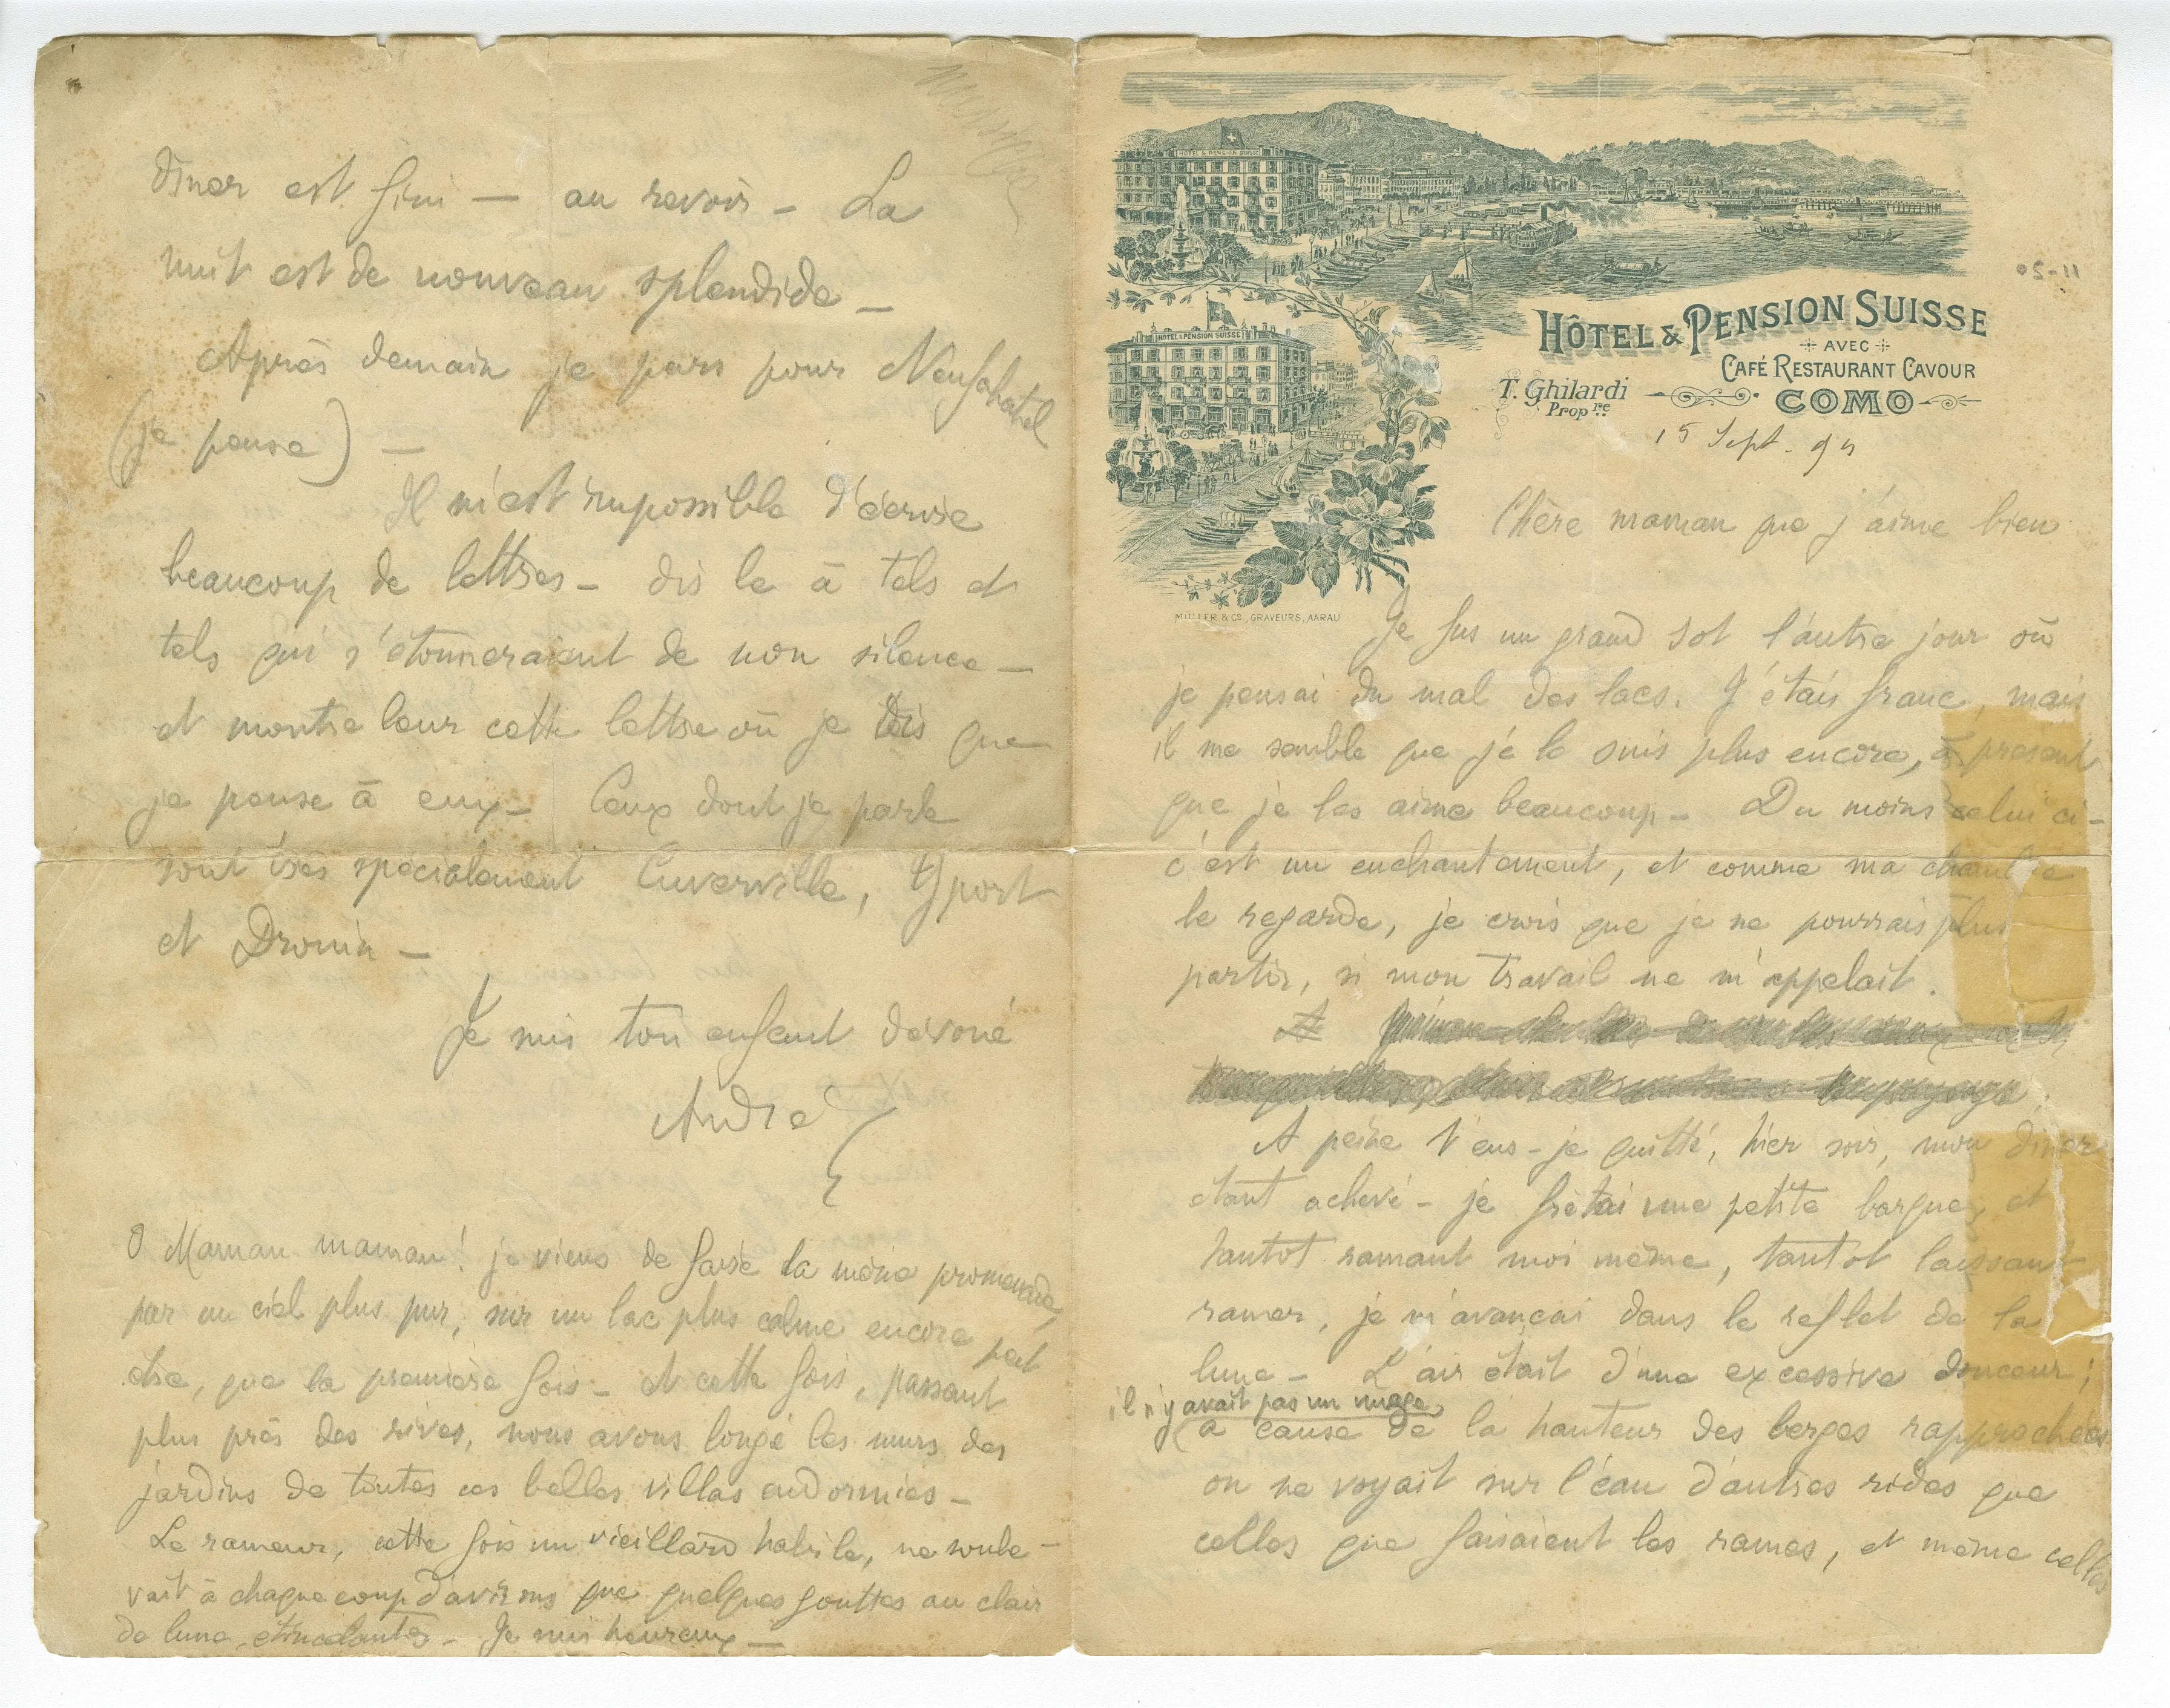 HÔTEL & PENSION SUISSE
AVEC
CAFÉ RESTAURANT CAVOUR
T. Ghilardi
Propre.
COMO
HOTEL & PENSION SUISSE
HOTEL & PENSION SUISSE
MÜLLER & Co., GRAVEURS, AARAU
11-20
15 Sept. 94
Chère maman que j'aime bien
Je fus un grand sot l'autre jour où
je pensai du mal des lacs. J'étais franc, mais
il me semble que je le suis plus encore, à présent
que je les aime beaucoup – Du moins celui ci –
c'est un enchantement, et comme ma chambre
le regarde, je crois que je ne pourrais plus
partir, si mon travail ne m'appelait.
A peine t'eus-je quitté, hier soir, mon dîner
étant achevé – je frétai une petite barque, et
tantot ramant moi même, tantôt laissant
ramer, je m'avançai dans le reflet de la
lune – L'air était d'une excessive douceur ;
il n'y avait pas un nuage,
à cause de la hauteur des berges rapprochées
on ne voyait sur l'eau d'autres rides que
celles que faisaient les rames, et même celles
dîner est fini — au revoir – La
nuit est de nouveau splendide –
Après demain je pars pour Neufchatel
(je pense) –
Il m'est impossible d'écrire
beaucoup de lettres – dis le à tels et
tels qui s'étonneraient de mon silence –
et montre leur cette lettre où je dis que
je pense à eux – Ceux dont je parle
sont très spécialement Cuverville, Yport
et Drouin –
Je suis ton enfant dévoué
André
O Maman maman ! je viens de faire la même promenade,
par un ciel plus pur, sur un lac plus calme encore peut
être, que la première fois – et cette fois, passant
plus près des rives, nous avons longé les murs des
jardins de toutes ces belles villas endormies –
Le rameur, cette fois un vieillard habile, ne soule-
vait à chaque coup d'avirons que quelques gouttes au clair
de lune, étincelantes – Je suis heureux —